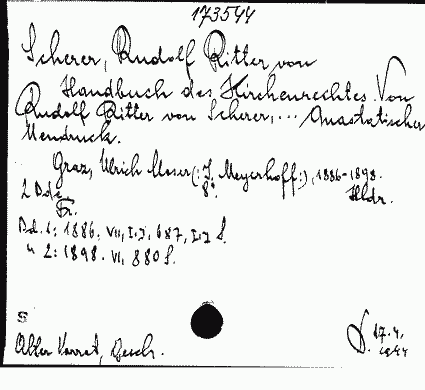 173544
Scherer, Rudolf Ritter von
Handbuch des Kirchenrechtes. Von
Rudolf Ritter von Scherer, ... Anastatischer
Neudruck.
Graz, Ulrich Moser (: J. Meyerhoff :), 1886-1898.
2 Bde. 8°. Hldr.
Fr.
Bd. 1: 1886. VII, I, I, 687, I, I S.
" 2: 1898. VI, 880 S.
S
Alter Vorrat, Gesch.
D. 17.4.
1944